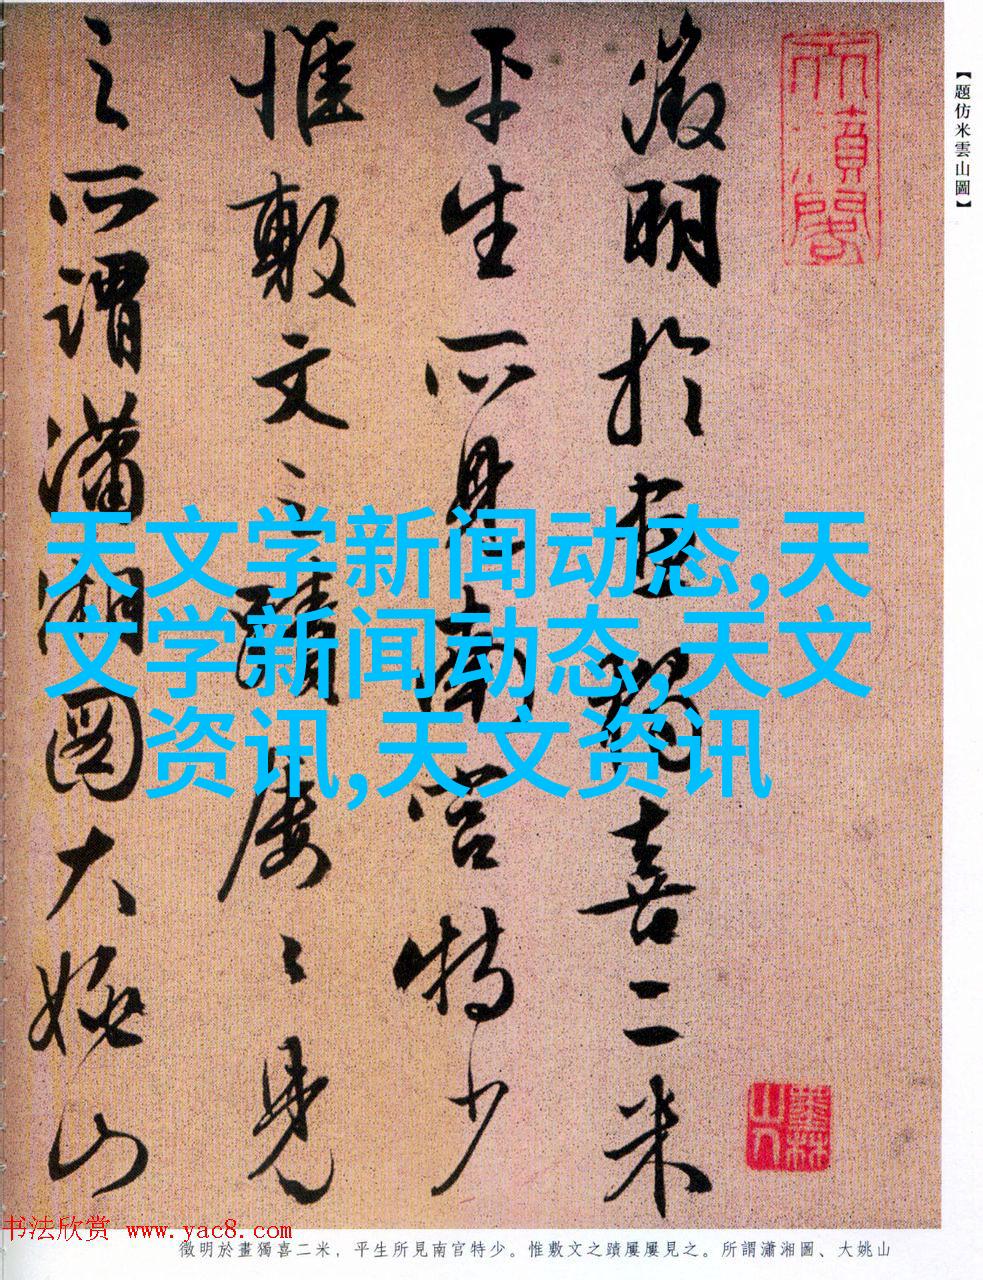 【題仿米雲山圖】
徵明於畫獨喜二米
平生所見南宮特少
惟敷文之蹟屢〻見
之所謂瀟湘圖大姚山
墨林山人
天文学新闻动态,天
文学新闻动态,天文
资讯,天文资讯
书法欣赏 www.yac8.com
徵明於畫獨喜二米，平生所見南官特少。惟敷文之蹟屢屢見之。所謂瀟湘圖、大姚山